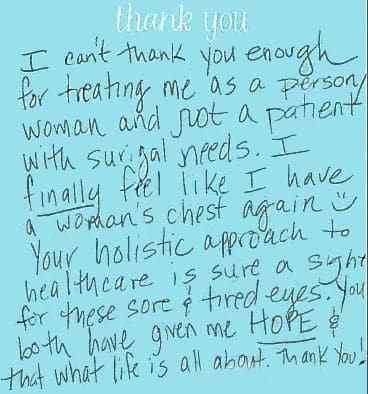 thank you
I can't thank you enough
for treating me as a person/
woman and not a patient
with surigal needs. I
finally feel like I have
a woman's chest again ü
Your holistic approach to
healthcare is sure a sight
for these sore & tired eyes. You
both have given me HOPE &
that what life is all about. Thank You!